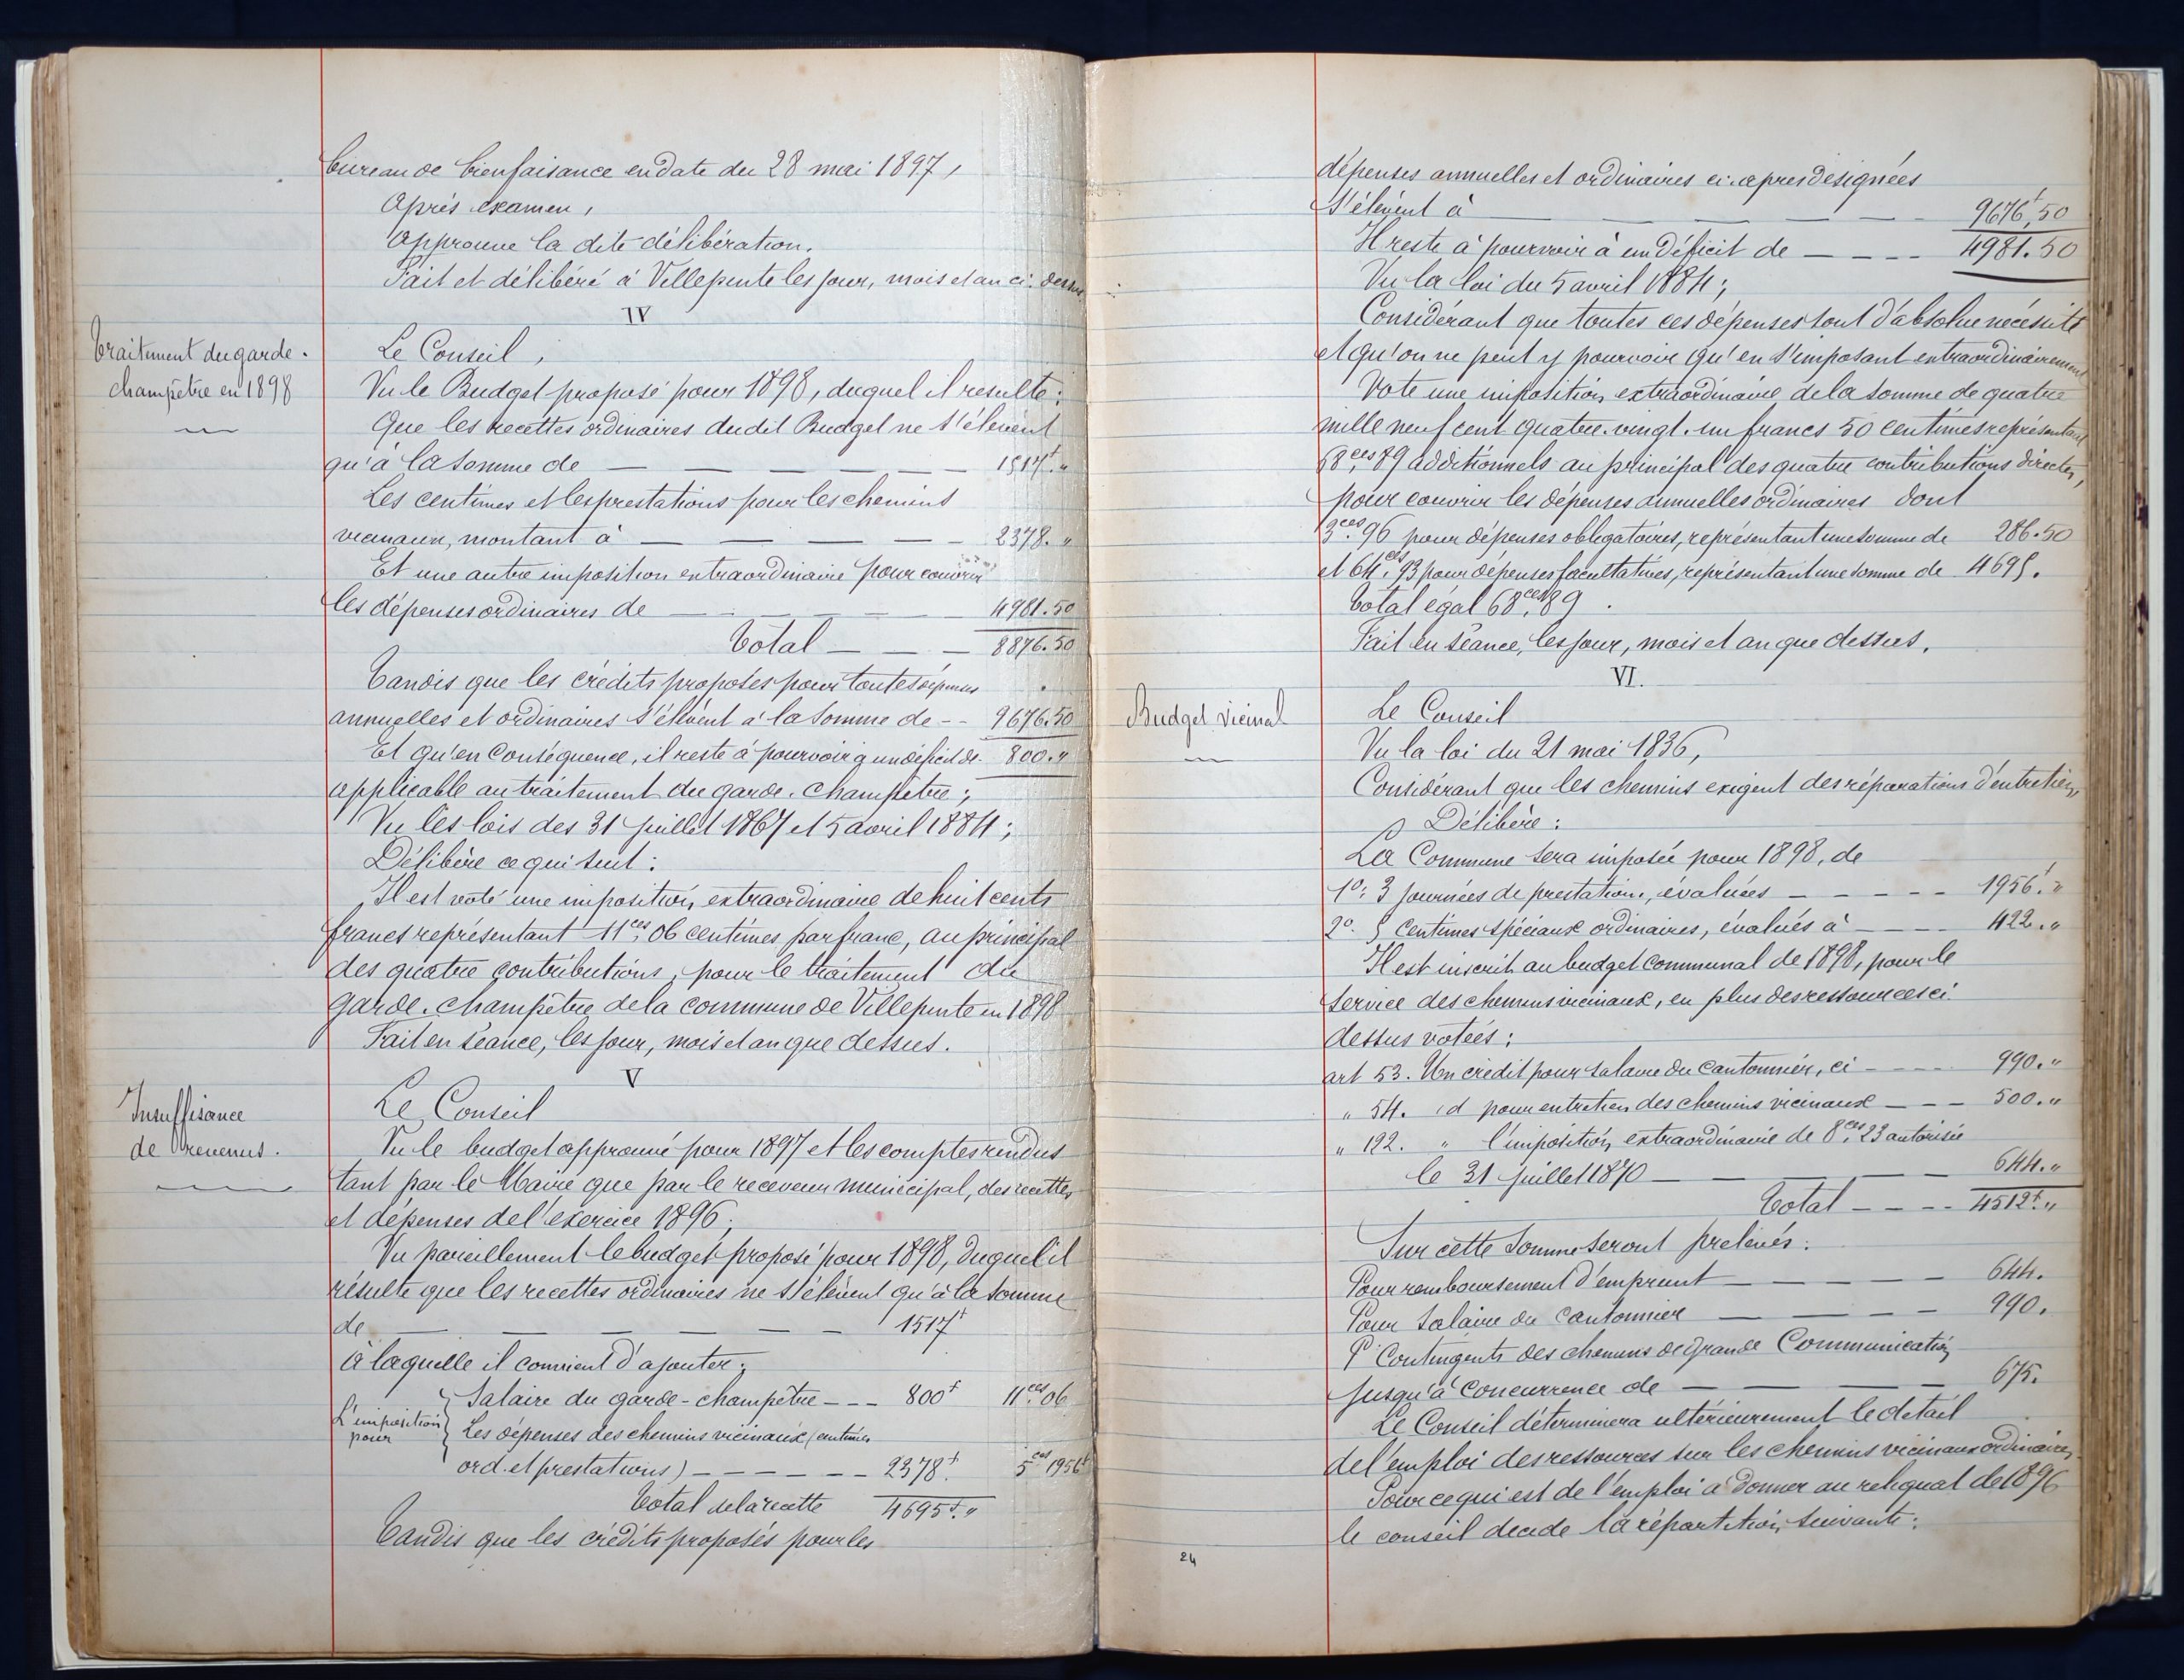 bureau de bienfaisance en date du 28 mai 1897,
Après examen,
Approuve la dite délibération.
Fait et délibéré à Villepinte les jour, mois et an ci-dessus
IV
Traitement du garde-
champêtre en 1898
Le Conseil,
Vu le Budget proposé pour 1898, duquel il resulte:
Que les recettes ordinaires dudit Budget ne s'élèvent
qu'à la somme de — — — — — — 1517f. "
Les centimes et les prestations pour les chemins
vicinaux, montant à — — — — — 2378. "
Et une autre imposition extraordinaire pour couvrir
les dépenses ordinaires de — — — — 4981.50
Total — — — 8876.50
Tandis que les crédits proposés pour toutes dépenses
annuelles et ordinaires s'élèvent à la somme de -- 9676.50
Et qu'en conséquence, il reste à pourvoir à un déficit de- 800. "
applicable au traitement du garde-champêtre;
Vu les lois des 31 juillet 1867 et 5 avril 1884;
Délibère ce qui suit:
Il est voté une imposition extraordinaire de huit cents
francs représentant 11ces,06 centimes par franc, au principal
des quatre contributions, pour le traitement du
garde-champêtre de la commune de Villepinte en 1898
Fait en séance, les jour, mois et an que dessus.
V
Insuffisance
de revenus.
Le Conseil
Vu le budget approuvé pour 1897 et les comptes rendus
tant par le Maire que par le receveur municipal, des recettes
et dépenses de l'exercice 1896;
Vu pareillement le budget proposé pour 1898, duquel il
résulte que les recettes ordinaires ne s'élèvent qu'à la somme
de — — — — — — 1517f
à laquelle il convient d'ajouter;
L'imposition
pour
Salaire du garde-champêtre --- 800f 11ces.06
Les dépenses des chemins vicinaux (centimes
ord. et prestations) ------ 2378f. 5ces 1956f
Total de la recette 4695f. "
Tandis que les crédits proposés pour les
dépenses annuelles et ordinaires ci-après désignées
s'élèvent à — — — — — 9676f,50
Il reste à pourvoir à un déficit de ---- 4981.50
Vu la loi du 5 avril 1884;
Considérant que toutes ces dépenses sont d'absolue nécessité
et qu'on ne peut y pourvoir qu'en s'imposant extraordinairement
Vote une imposition extraordinaire de la somme de quatre
mille neuf cent quatre-vingt-un francs 50 centimes représentant
68ces,89 additionnels au principal des quatre contributions directes,
pour couvrir les dépenses annuelles ordinaires dont
3ces.96 pour dépenses obligatoires, représentant une somme de 286.50
et 64ces,93 pour dépenses facultatives, représentant une somme de 4695.
Total égal 68ces,89.
Fait en séance, les jour, mois et an que dessus.
VI.
Budget vicinal
Le Conseil
Vu la loi du 21 mai 1836,
Considérant que les chemins exigent des réparations d'entretien,
Délibère:
La Commune sera imposée pour 1898, de
1º: 3 journées de prestations, évaluées ----- 1956f. "
2º. 5 centimes spéciaux ordinaires, évalués à ---- 422. "
Il est inscrit au budget communal de 1898, pour le
service des chemins vicinaux, en plus des ressources ci-
dessus votées;
art 53. Un crédit pour salaire du cantonnier, ci ---- 990. "
" 54. id pour entretien des chemins vicinaux --- 500. "
" 192. " l'imposition extraordinaire de 8ces,23 autorisée
le 31 juillet 1870 — — — — 644. "
Total ---- 4512f. "
Sur cette somme seront prélevés:
Pour remboursement d'emprunt ----- 644.
Pour salaire du cantonnier ---- 990.
Pr Contingents des chemins de grande Communication
jusqu'à concurrence de — — — — 675.
Le Conseil déterminera ultérieurement le détail
de l'emploi des ressources sur les chemins vicinaux ordinaires.
Pour ce qui est de l'emploi à donner au reliquat de 1896
le conseil décide la répartition suivante:
24